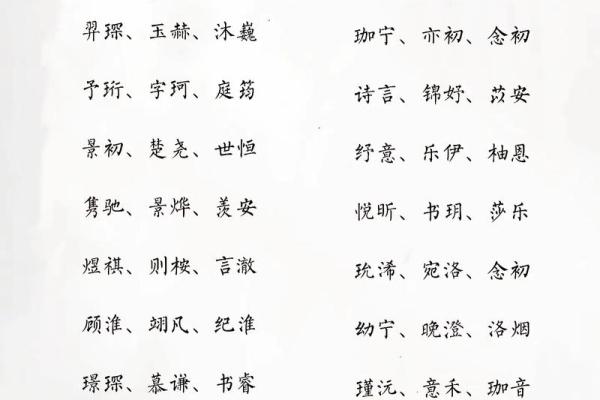 羿琛、玉赫、沐巍
予珩、字珂、庭筠
景初、楚尧、世恒
隽驰、景烨、羡安
煜祺、则桉、言澈
顾淮、翊凡、纪淮
璟琛、慕谦、书睿
珈宁、亦初、念初
诗言、锦妤、苡安
纾意、乐伊、柚恩
悦昕、书玥、莎乐
玧浠、宛洛、念初
幼宁、晚澄、洛烟
瑾沅、意禾、珈音